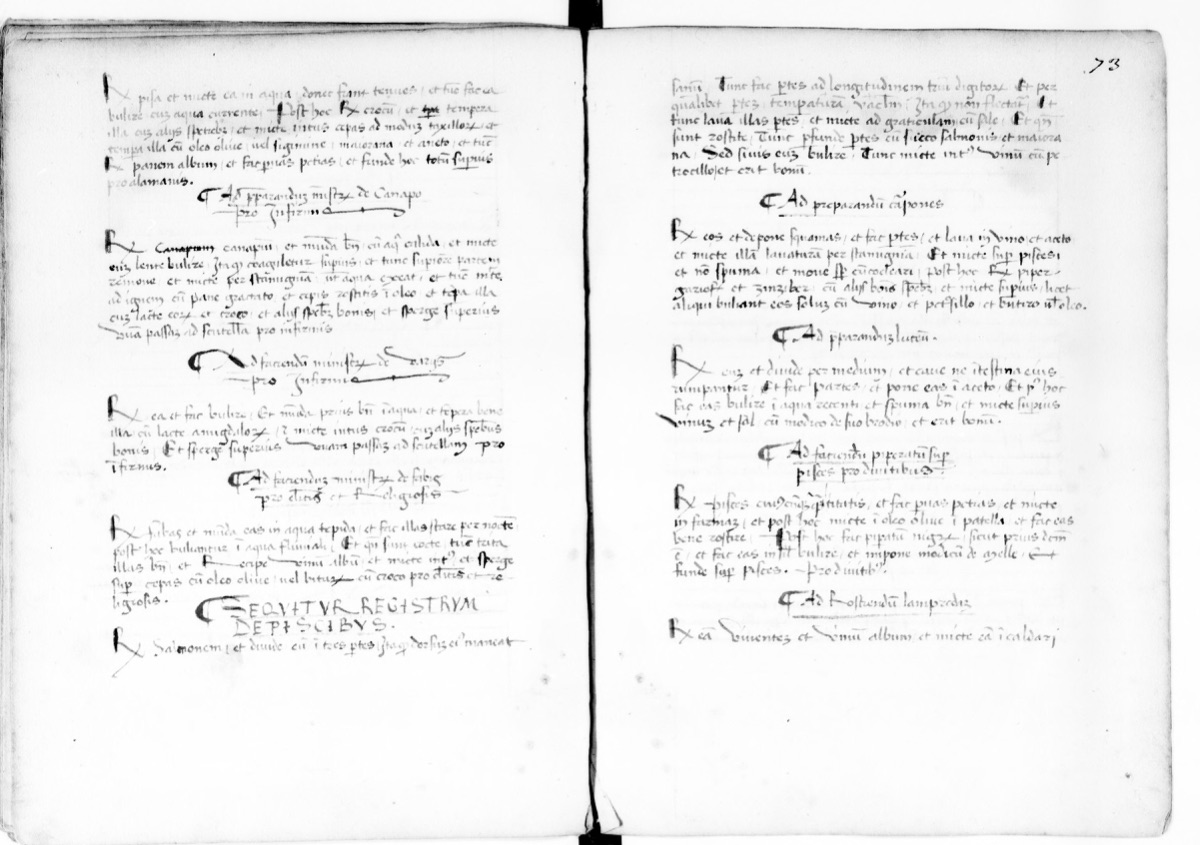 ℞ pisa et micte ea in aqua, donec fiant tenues, et tūc fac ea
bulire cuʒ aqua currente, Post hoc ℞ crocū, et tempera
illa cuʒ alijs sp̄ebʒ et micte intus cepas ad moduʒ taxilloꝝ et
temꝑa illa cū oleo olive, vel sigimine, maiorana, et aneto, et tūc
℞ panem album, et fac ꝑuas petias, et funde hoc totū suꝑius
pro alamanis.
Ad p̄parandūʒ mīstrꝝ de Canapo
pro Infirmis
℞ canapm̄, et mūda bn̄ cū aq̄ calida, et micte
euʒ lente bulire, Itaqʒ coagiletur suꝑius, et tunc suꝑiorē partem
remove et micte per stamignā, ut aqua exeat, et tūc micte
ad ignem cū pane gratato, et cepis rostitis ī oleo et tēꝑa illa
cuʒ lacte eoꝝ et croco, et alijs sp̄ebʒ bonis, et sperge superius
Vuā passaʒ ad scutella pro īfirmis
Ad faciendū ministꝝ de
pro Infirmis
℞ ea et fac bulire, Et mūda prius bn̄ ī aqua, et tēpera bene
illa cū lacte amigdaloꝝ, ⁊ micte intus crocū cuʒ alijs sp̄ebus
bonis, Et sperge superius uvam passaʒ ad scutellam pro
īfirmis.
Ad faciendūʒ ministrꝝ de fabis
pro cl̄icis et Religiosis
℞ fabas et mūda eas in aqua tepida, et fac illas stare per noctē
post hoc buliantur ī aqua fluviali, Et qn̄ sunt cocte, tūc trita
illas bn̄, et Recipe vinū albū, et micte int9, et sperge
suꝑ cepas cū oleo olive, vel bituro, cū croco pro cl̄icis et re
ligiosis.
SEQVITVR REGISTRVM
DE PISCIBVS.
℞ Salmonem, et divide eū ī tres ꝑtes, Itaqʒ dorsuʒ ei9 maneat
73
sanū, Tunc fac ꝑtes ad longitudinem triū digitoꝝ, Et per
qualibet ꝑteʒ, Itaqʒ nō flectat̄, Et
tunc lava illas ꝑtes, et micte ad graticulam cū sale, Et qn̄
sunt rostite, Tunc ꝑfunde ꝑtes cū sicco salmonis et maiora
na, Sed sinis euʒ bulire, Tunc micte int9 vinū cū pe
trocillo, et erit bonū.
Ad preparandū caꝑones
℞ eos et depone squamas, et fac ꝑtes, et lava in vino et aceto
et micte illam lavaturam per stamignā, Et micte suꝑ pisces
et nō spuma, et move sꝑ cū cocleari, Post hoc ℞ piper
gariofʒ et zinziber, cū alijs bois sp̄ebʒ et micte suꝑius, licet
aliqui buliant eos solum cū vino, et petrsillo, et butiro vl̄ oleo.
Ad p̄parandūʒ luceū.
℞ euʒ et divide per medium, et cave ne ītestina eius
rumpantur, Et fac partes, et pone eas ī aceto, Et p9 hoc
fac eas bulire ī aqua recenti et spuma bn̄, et micte suꝑius
vinuʒ et sal, cū modico de suo brodio, et erit bonū.
Ad faciendū piperatū suꝑ
pisces pro divitibus.
℞ pisces, et fac ꝑuas petias et micte
in farinaʒ, et post hoc micte ī oleo olive ī patella, et fac eas
bene rostire, Post hoc fac piꝑatū nigꝝ, sicut prius dcm̄
ē, et fac eas in ill̄ bulire, et impone modicū de melle, Et
funde suꝑ pisces. Pro divitib9.
Ad Rostiendū lampredaʒ
℞ eā viventeʒ et vinū album, et micte eā ī caldari